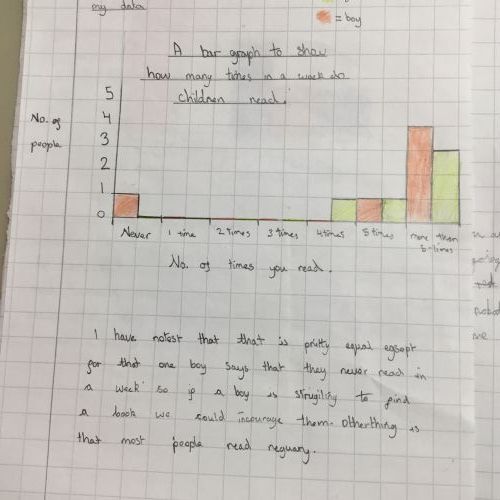 my data
= boy
A bar graph to show
how many times in a week do
children read.
5
4
3
2
1
0
No. of
people
Never
1 time
2 times
3 times
4 times
5 times
more than
5 times
No. of times you read.
I have notest that that is pritty equal egsept
for that one boy says that they never read in
a week so if a boy is strugiling to find
a book we could incourage them. Otherthing is
that most people read reguary.
me